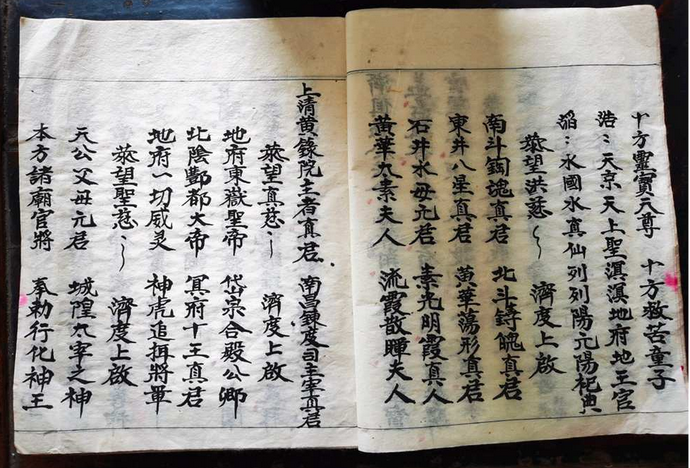 十方靈寶天尊 十方救苦童子
浩:天京天上聖 溟漠地府地王官
滔:水國水真仙 列列陽元陽祀典
恭望洪慈〜 濟度上啟
南斗鍧魂真君 北斗鑄魄真君
東井八星真君 黃華蕩形真君
石井水母元君 素光明霞真人
黃華九素夫人 流霞散暉夫人
上清黃籙院主者真君 南昌鍊度司主宰真君
恭望真慈〜 濟度上啟
地府東嶽聖帝 岱宗合殿公卿
北陰酆都大帝 冥府十王真君
地府一切威灵 神虎追揖將軍
恭望聖慈〜 濟度上啟
元公父母元君 城隍九宰之神
本方諸廟官將 奉勅行化神王